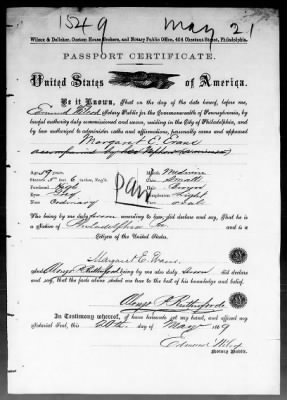 1549 May 21
Wilcox & Delleker, Custom House Brokers, and Notary Public Office, 404 Chestnut Street, Philadelphia.
PASSPORT CERTIFICATE.
United States of America.
Be it Known, That on the day of the date hereof, before me,
Edmund Wilcox Notary Public for the Commonwealth of Pennsylvania, by
lawful authority duly commissioned and sworn, residing in the City of Philadelphia, and
by law authorized to administer oaths and affirmations, personally came and appeared
Margaret E. Evans
accompanied by
Age, 59 years. Mouth, Medium
Stature, 5 ft. 6 inches, Eng'h Chin, Small
Forehead, High Hair, Brown
Eyes, Complexion, Light
Nose, Ordinary Face, Oval
Who being by me duly sworn according to law, did declare and say, That he is
a Native of Philadelphia Pa. and is a
Citizen of the United States.
Margaret E. Evans
And Alonzo P. Rutherford being by me also duly sworn did declare
and say, that the facts above stated are true to the best of his knowledge and belief.
Alonzo P. Rutherford
In Testimony whereof, I have hereunto set my hand, and affixed my
Notarial Seal, this 20th day of May 1869
Edmund Wilcox
Notary Public.